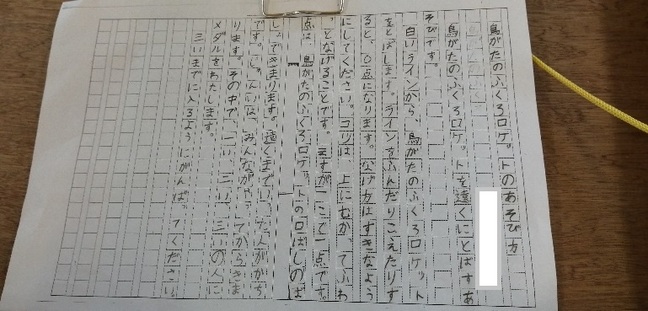 鳥がたのふくろロケットのあそび方
鳥がたのふくろロケットを遠くにとばすあ
そびです。
白いラインから、鳥がたのふくろロケット
をとばします。ラインをふんだりこえたりす
ると、0点になります。なげ方はすきなよう
にしてください。コツは、上にむかってふわ
っとなげることです。ますが一こで一点です。
点は、鳥がたのふくろロケットの口ばしのば
しょできまります。遠くまでいった人がかち
です。じゅんいは、みんながやってからきま
ります。その中で、一い、二い、三いの人に
メダルをわたします。
三いまでに入るようにがんばってください。